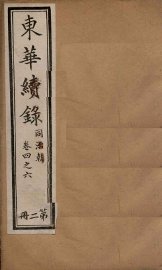 東華續錄
同治朝
卷四之六
第二冊